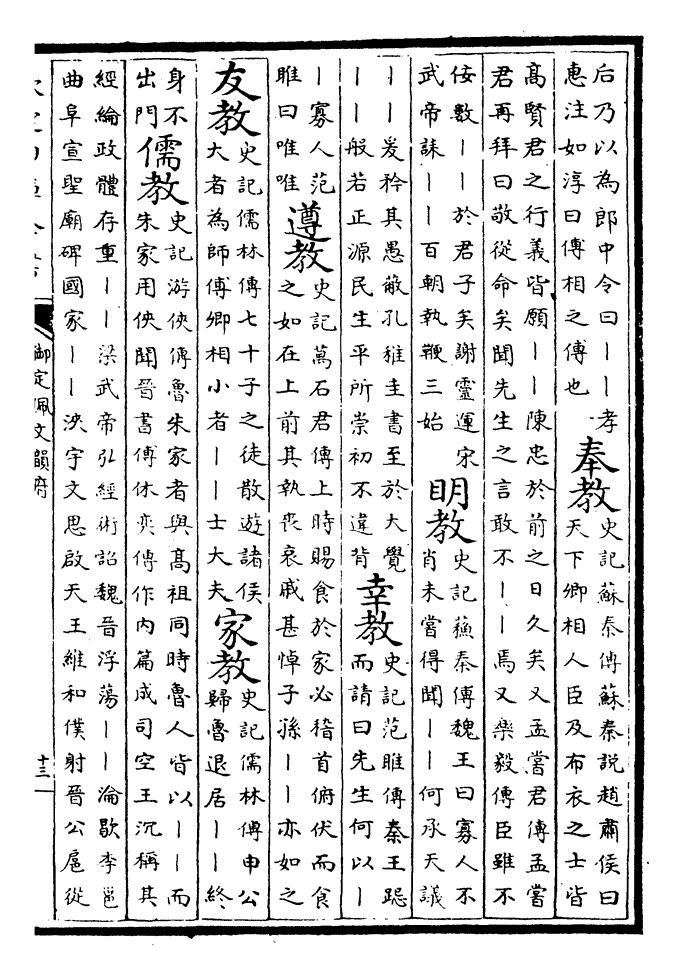 后乃以為郎中令曰丨丨孝
惠注如淳曰傅相之傅也
奉教
史記蘇秦傳蘇秦説趙肅侯曰
天下卿相人臣及布衣之士皆
髙賢君之行義皆願丨丨陳忠於前之日久矣又孟嘗君傳孟嘗
君再拜曰敬從命矣聞先生之言敢不丨丨焉又樂毅傳臣雖不
佞數丨丨於君子矣謝靈運宋
武帝誄丨丨百朝執鞭三始
明教
史記蘓秦傳魏王曰寡人不
肖未嘗得聞丨丨何承天議
丨丨爰矜其愚蔽孔稚圭書至於大覺
丨丨般若正源民生平所崇初不違背
幸教
史記范睢傳秦王跽
而請曰先生何以丨
丨寡人范
睢曰唯唯
遵教
史記萬石君傳上時賜食於家必稽首俯伏而食
之如在上前其執喪哀戚甚悼子孫丨丨亦如之
友教
史記儒林傳七十子之徒散遊諸侯
大者為師傅卿相小者丨丨士大夫
家教
史記儒林傳申公
歸魯退居丨丨終
身不
出門
儒教
史記游俠傳魯朱家者與髙祖同時魯人皆以丨丨而
朱家用俠聞晉書傅休奕傳作内篇成司空王沉稱其
經綸政體存重丨丨梁武帝弘經術詔魏晉浮蕩丨丨淪歇李邕
曲阜宣聖廟碑國家丨丨泱宇文思啟天王維和僕射晉公扈從
御定佩文韻府
十三